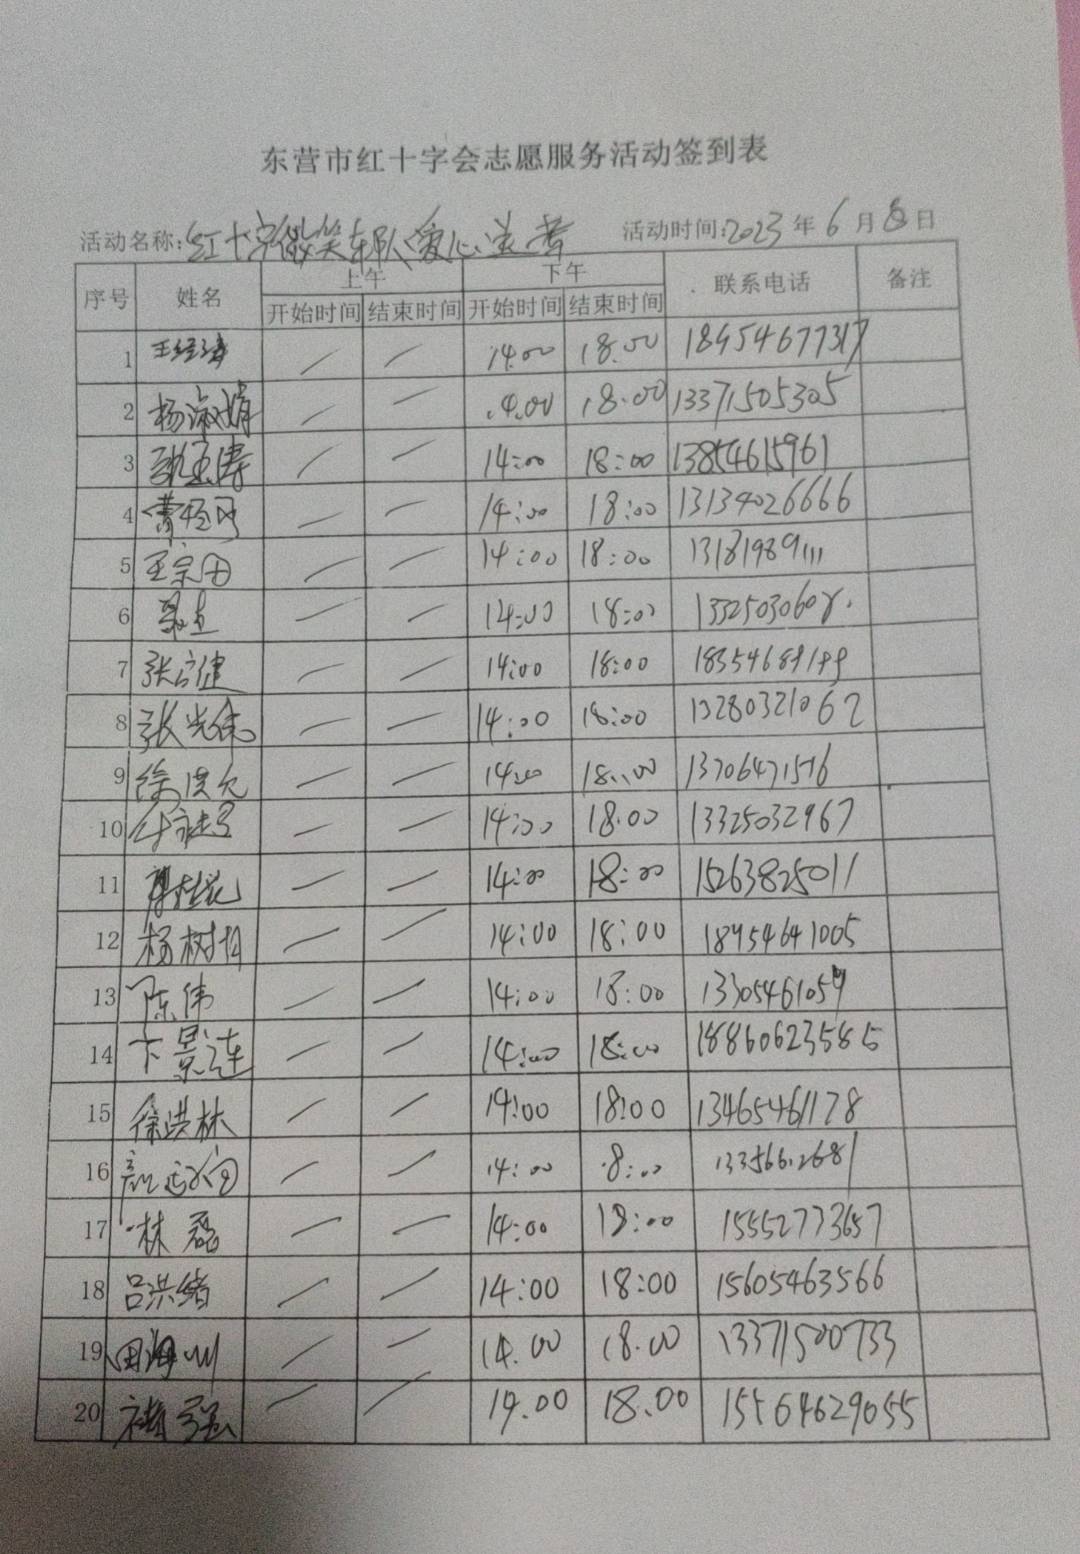 东营市红十字会志愿服务活动签到表
活动名称:红十字微笑车队爱心送考 活动时间:2023年6月8日
序号 姓名 上午 下午 联系电话 备注
开始时间 结束时间 开始时间 结束时间
1 / / 14:00 18:00 18454677317
2 杨淑娟 / / 14.00 18.00 13371505305
3 / / 14:00 18:00 13854615961
4 / / 14:00 18:00 13134026666
5 王宗田 / / 14:00 18:00 13181989111
6 / / 14:00 18:00 13325030608
7 张广健 / / 14:00 18:00
8 张光德 / / 14:00 18:00 13280321062
9 徐洪允 / / 14:00 18:00 13706471576
10 / / 14:00 18:00 13325032967
11 / / 14:00 18:00 15263825011
12 杨树 / / 14:00 18:00 18954641005
13 陈伟 / / 14:00 18:00 13305461059
14 卞景连 / / 14:00 18:00 18860623585
15 徐洪林 / / 14:00 18:00 13465461178
16 / / 14:00 18:00 13356612681
17 林磊 / / 14:00 18:00 15552773657
18 吕洪绪 / / 14:00 18:00 15605463566
19 田海川 / / 14.00 18.00 13371500733
20 褚强 / / 14.00 18.00 15564629055